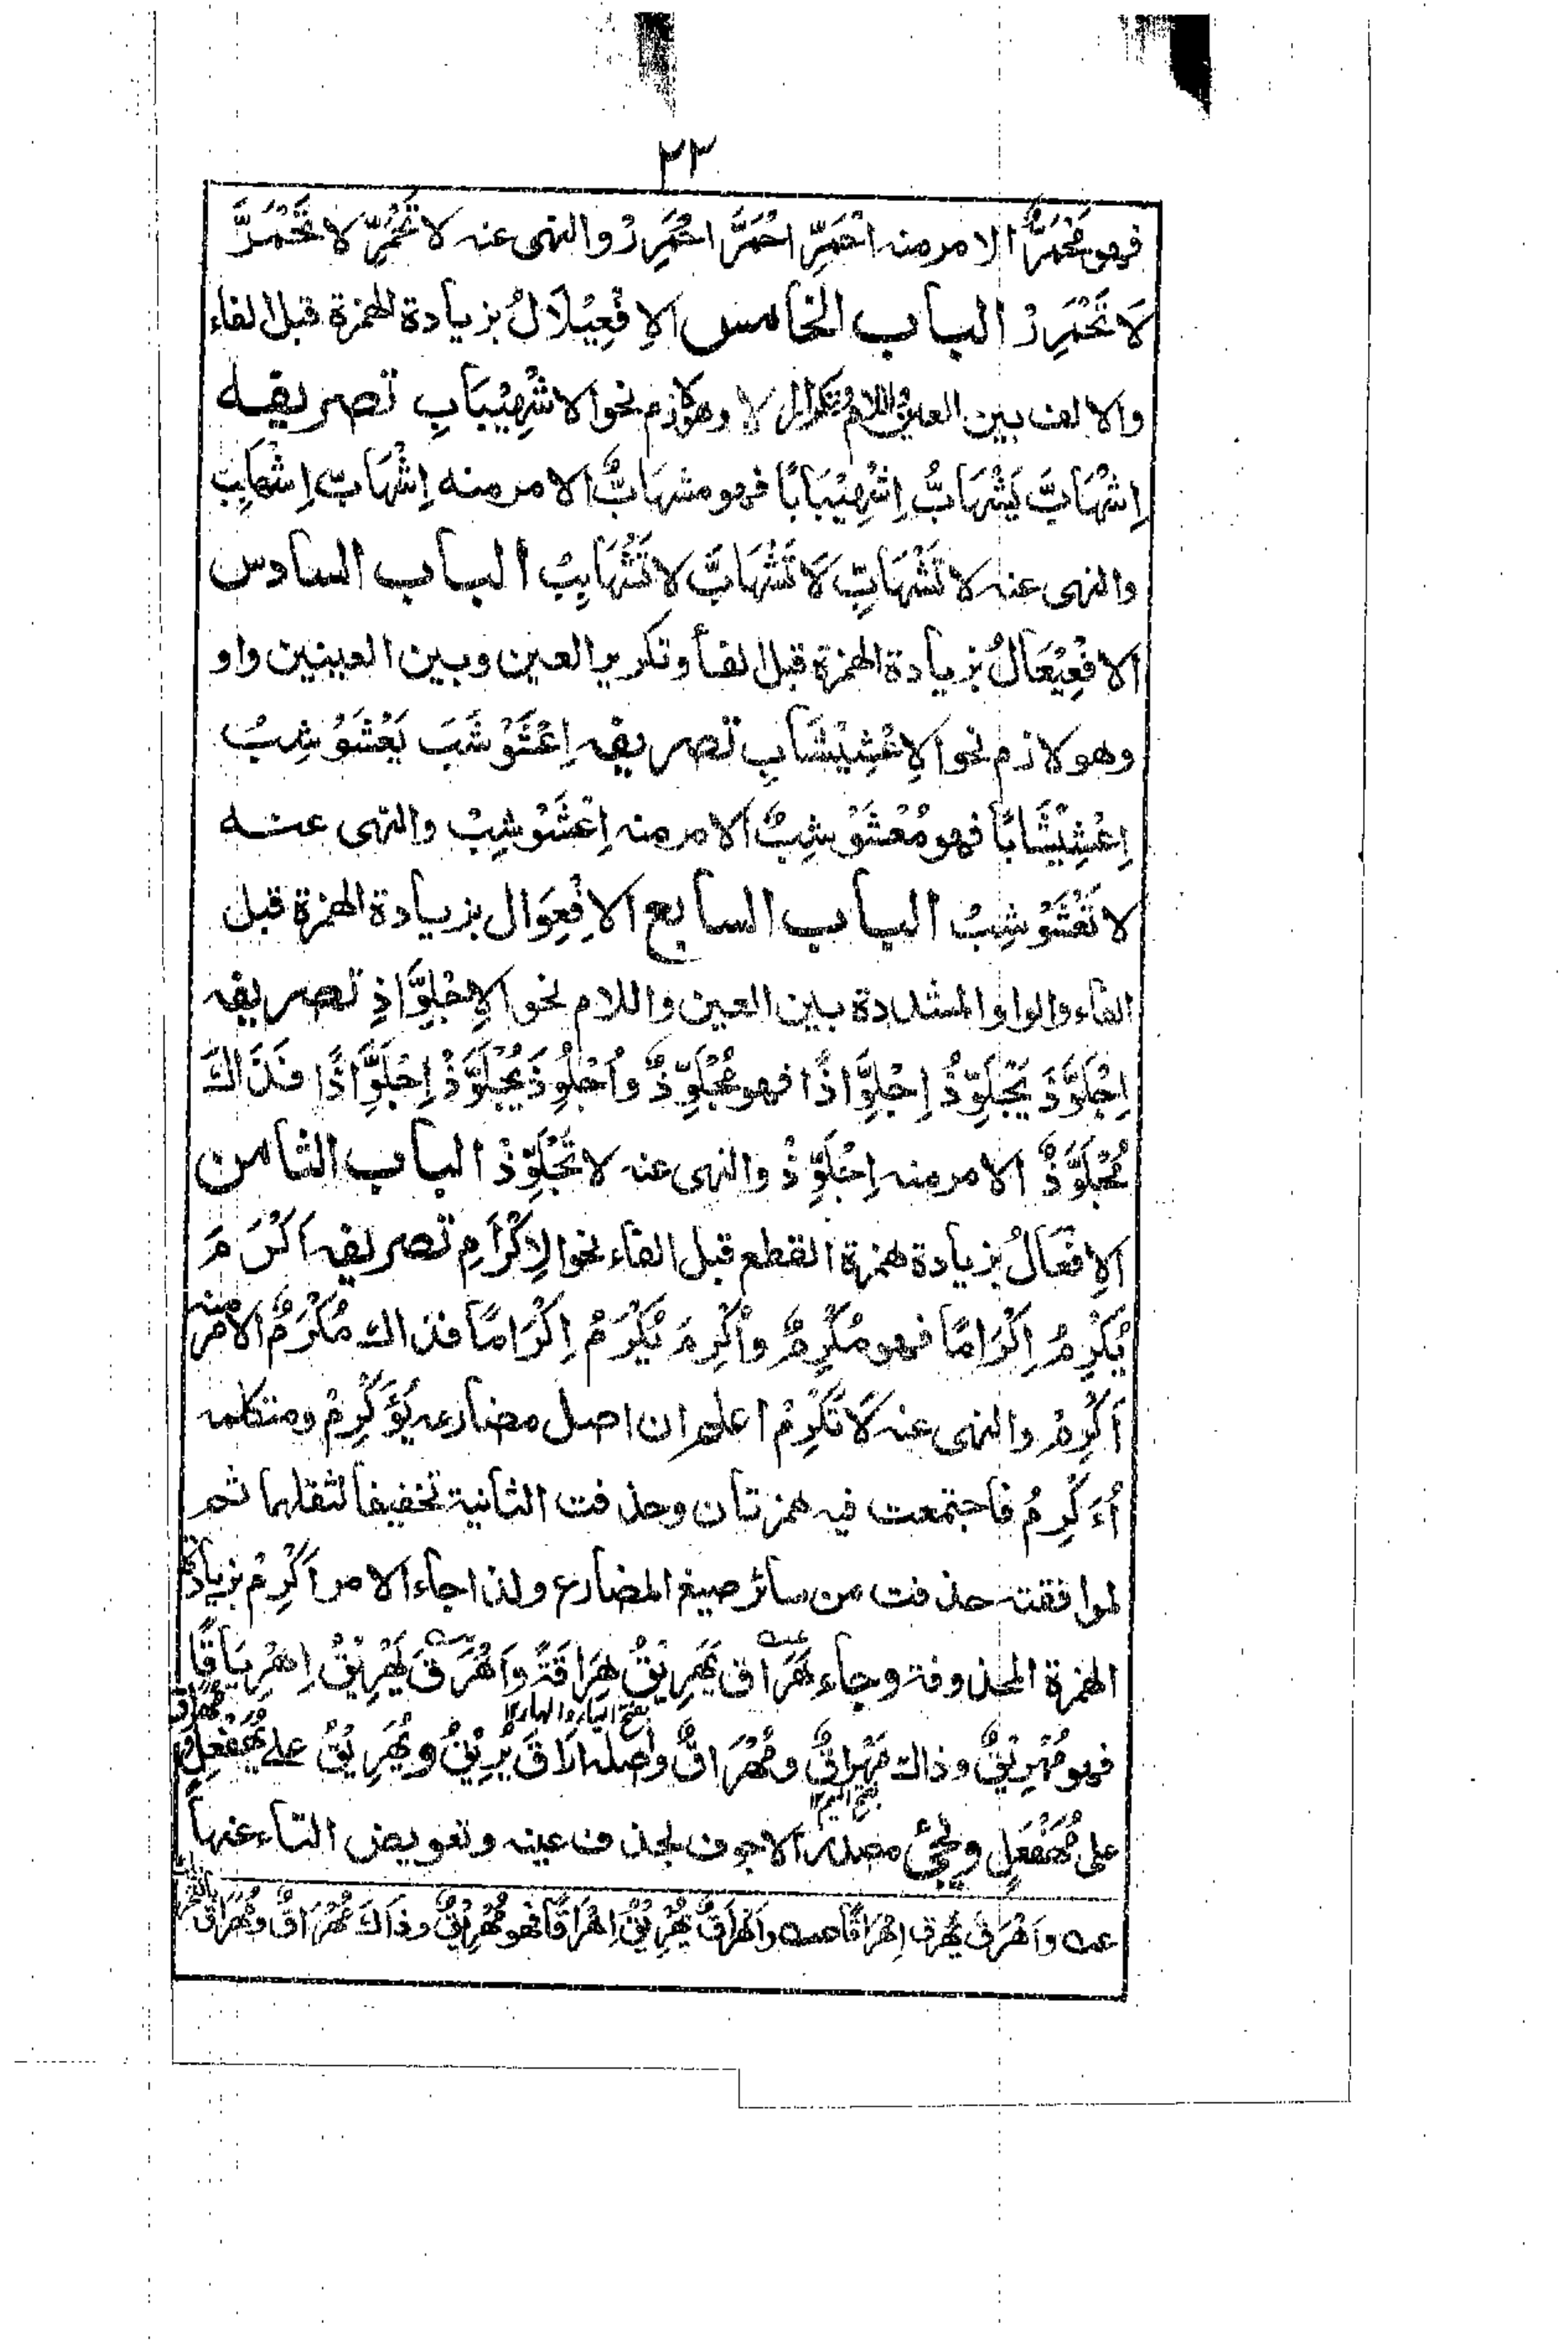 ٢٣
فهو مُحْمَرٌّ الامر منه احْمَرِّ احْمَرَّ احْمَرِرْ والنهى عنه لا تَحْمَرِّ لا تَحْمَرَّ
لَا تَحْمَرِرْ الباب الخامس الِافْعِيْلَالُ بزيادة الهمزة قبل الفاء
والالف بين العين واللام وتكرار اللام وهو لازم نحو الاشْهِيْبَابِ تصريفه
اِشْهَابَّ يَشْهَابُّ اِشْهِيْبَابًا فهو مشهَابٌّ الامر منه اِشْهَابِّ اِشْهَابِبْ
والنهى عنه لا تَشْهَابِّ لَا تَشْهَابَّ لا تَشْهَابِبْ الباب السادس
الافْعِيْعَالُ بزيادة الهمزة قبل الفأ وتكرير العين وبين العينين واو
وهو لازم نحو الِاعْشِيْشَابِ تصريفه اِعْشَوْشَبَ يَعْشَوْشِبُ
اِعْشِيْشَابًا فهو مُعْشَوْشِبٌ الامر منه اِعْشَوْشِبْ والنهى عنه
لا تَعْشَوْشِبْ الباب السابع الافْعِوَّال بزيادة الهمزة قبل
الفاء والواو المشددة بين العين واللام نحو الِاجْلِوَّاذِ تصريفه
اِجْلَوَّذَ يَجْلَوِّذُ اِجْلِوَّاذًا فهو مُجْلَوِّذٌ وَاُجْلُوِّذَ يُجْلَوَّذُ اِجْلِوَّاذًا فَذَاكَ
مُجْلَوَّذٌ الامر منه اِجْلَوِّذْ والنهى عنه لا تَجْلَوِّذْ الباب الثامن
الِافْعَالُ بزيادة همزة القطع قبل الفاء نحو الِاكْرَامِ تصريفه اَكْرَمَ
يُكْرِمُ اِكْرَامًا فهو مُكْرِمٌ وَاُكْرِمَ يُكْرَمُ اِكْرَامًا فذاك مُكْرَمٌ الامر منه
اَكْرِمْ والنهى عنه لَا تُكْرِمْ اعلم ان اصل مضارعه يُؤَكْرِمُ ومتكلمه
أُءَكْرِمُ فاجتمعت فيه همزتان وحذفت الثانية تخفيفا لثقلها ثم
لموافقته حذفت من سائر صيغ المضارع ولذا جاء الامر اَكْرِمْ بزيادة
الهمزة المحذوفة وجاء هَرَاقَ يُهَرِيْقُ هِرَاقَةً وَاَهْرَقَ يُهْرِيْقُ اِهْرِيَاقًا
بفتح الياء والهاء
فهو مُهْرِيْقٌ وذاك مُهْرَاقٌ ومُهْرَاقٌ واصله اَرَاقَ يُرِيْقُ ويُهَرِيْقُ على يُهَفْعِلُ
بفتح الميم
على مُهَفْعَلٍ ويجئ مصدر الاجوف بحذف عينه وتعويض التاء عنها
عه وَاَهْرَقَ يُهْرِقُ اِهْرَاقًا مه وَاَهْرَاقَ يُهْرِيْقُ اِهْرَاقًا فهو مُهْرِيْقٌ وذَاكَ مُهْرَاقٌ ومُهْرَاقٌ